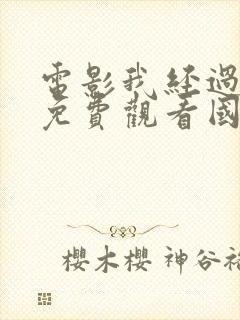 電影我經過
免費觀看國
櫻木櫻 神谷裕